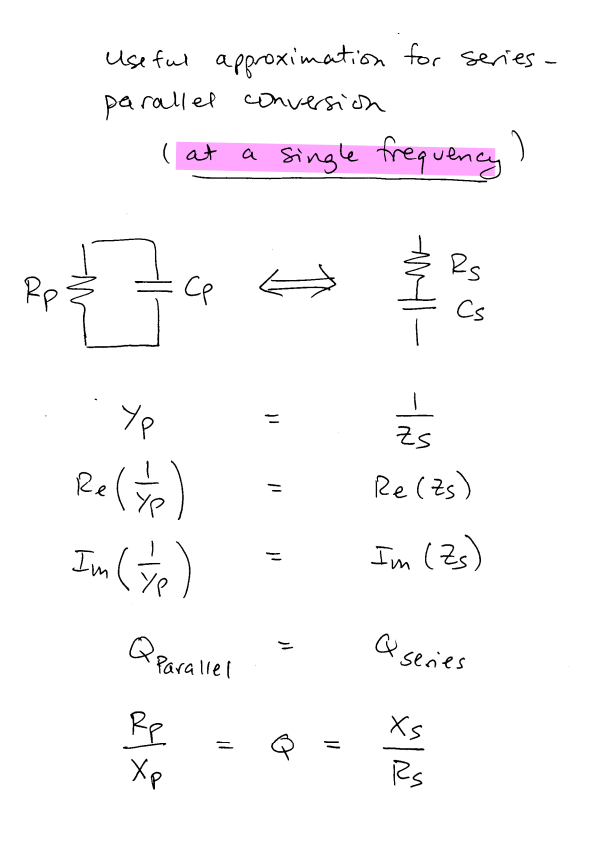 Useful approximation for series-
parallel conversion
(at a single frequency)
Rp Cp ⟺ Rs
Cs
Yp = 1/Zs
Re(1/Yp) = Re(Zs)
Im(1/Yp) = Im(Zs)
QParallel = Qseries
Rp/Xp = Q = Xs/Rs